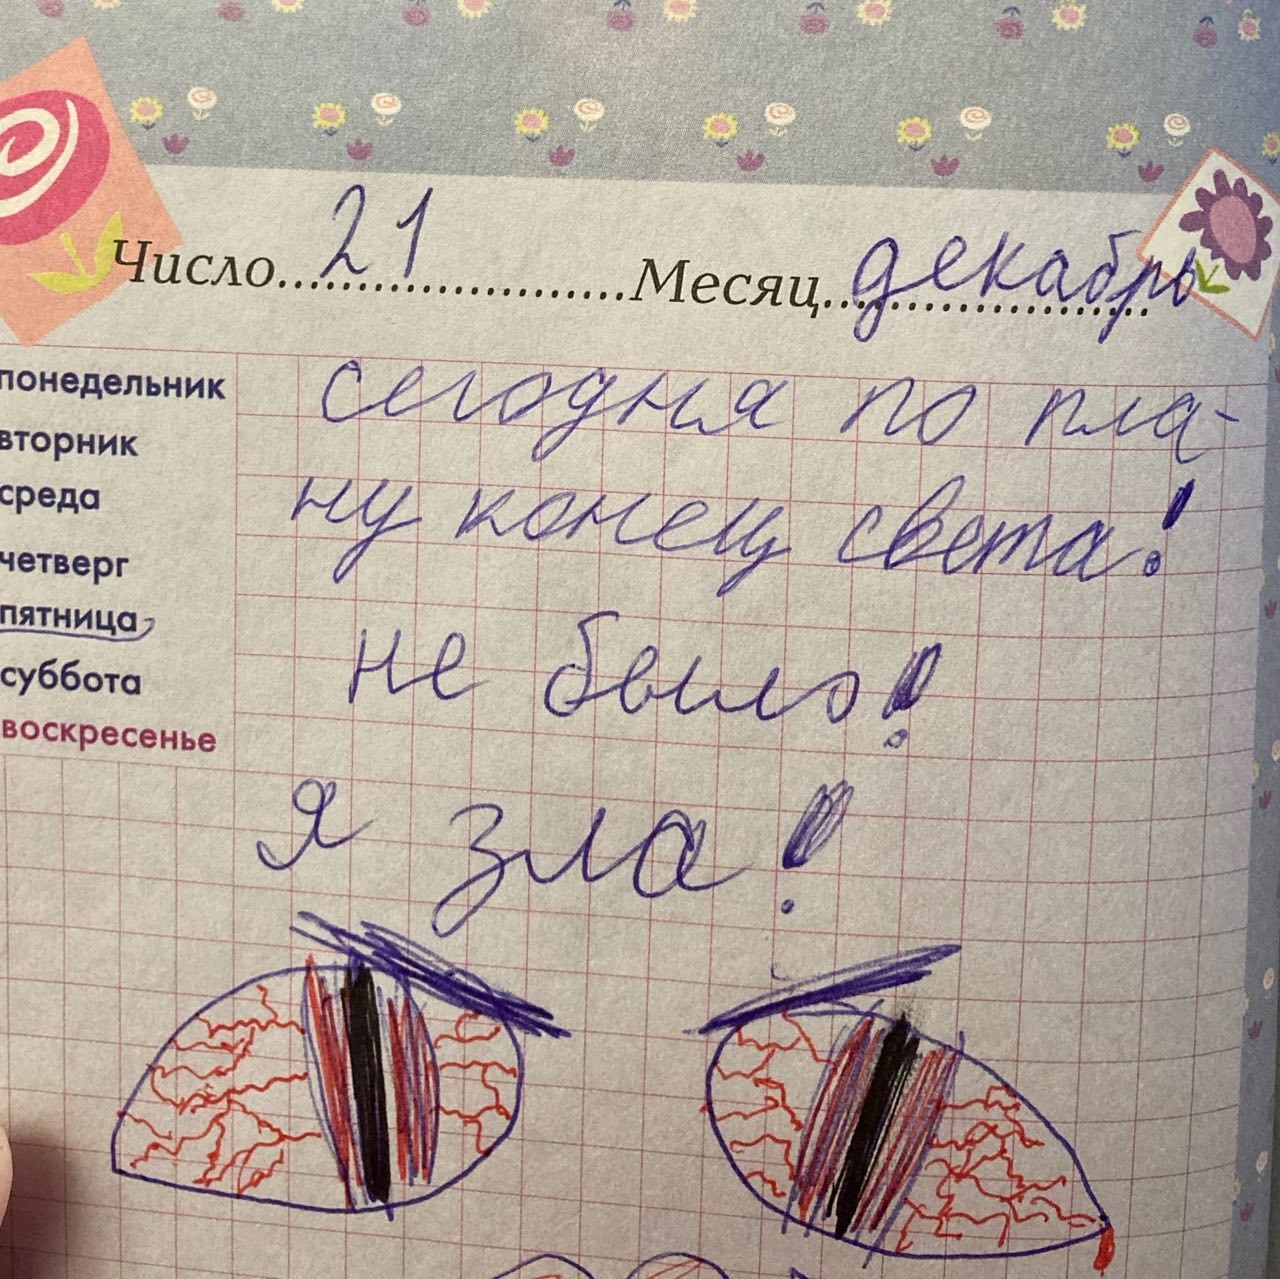 Число 21 Месяц декабрь
понедельник
вторник
среда
четверг
пятница
суббота
воскресенье
сегодня по пла-
ну конец света!
не было!
я зла!